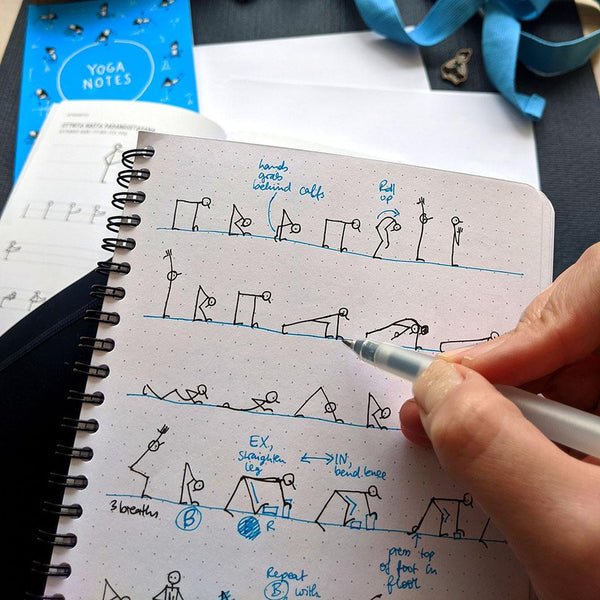 YOGA
NOTES
hands
grab
behind calfs
Roll
up
EX,
straighten
leg
IN,
bend knee
3 breaths
B
R
press top
of foot in
floor
Repeat
B with